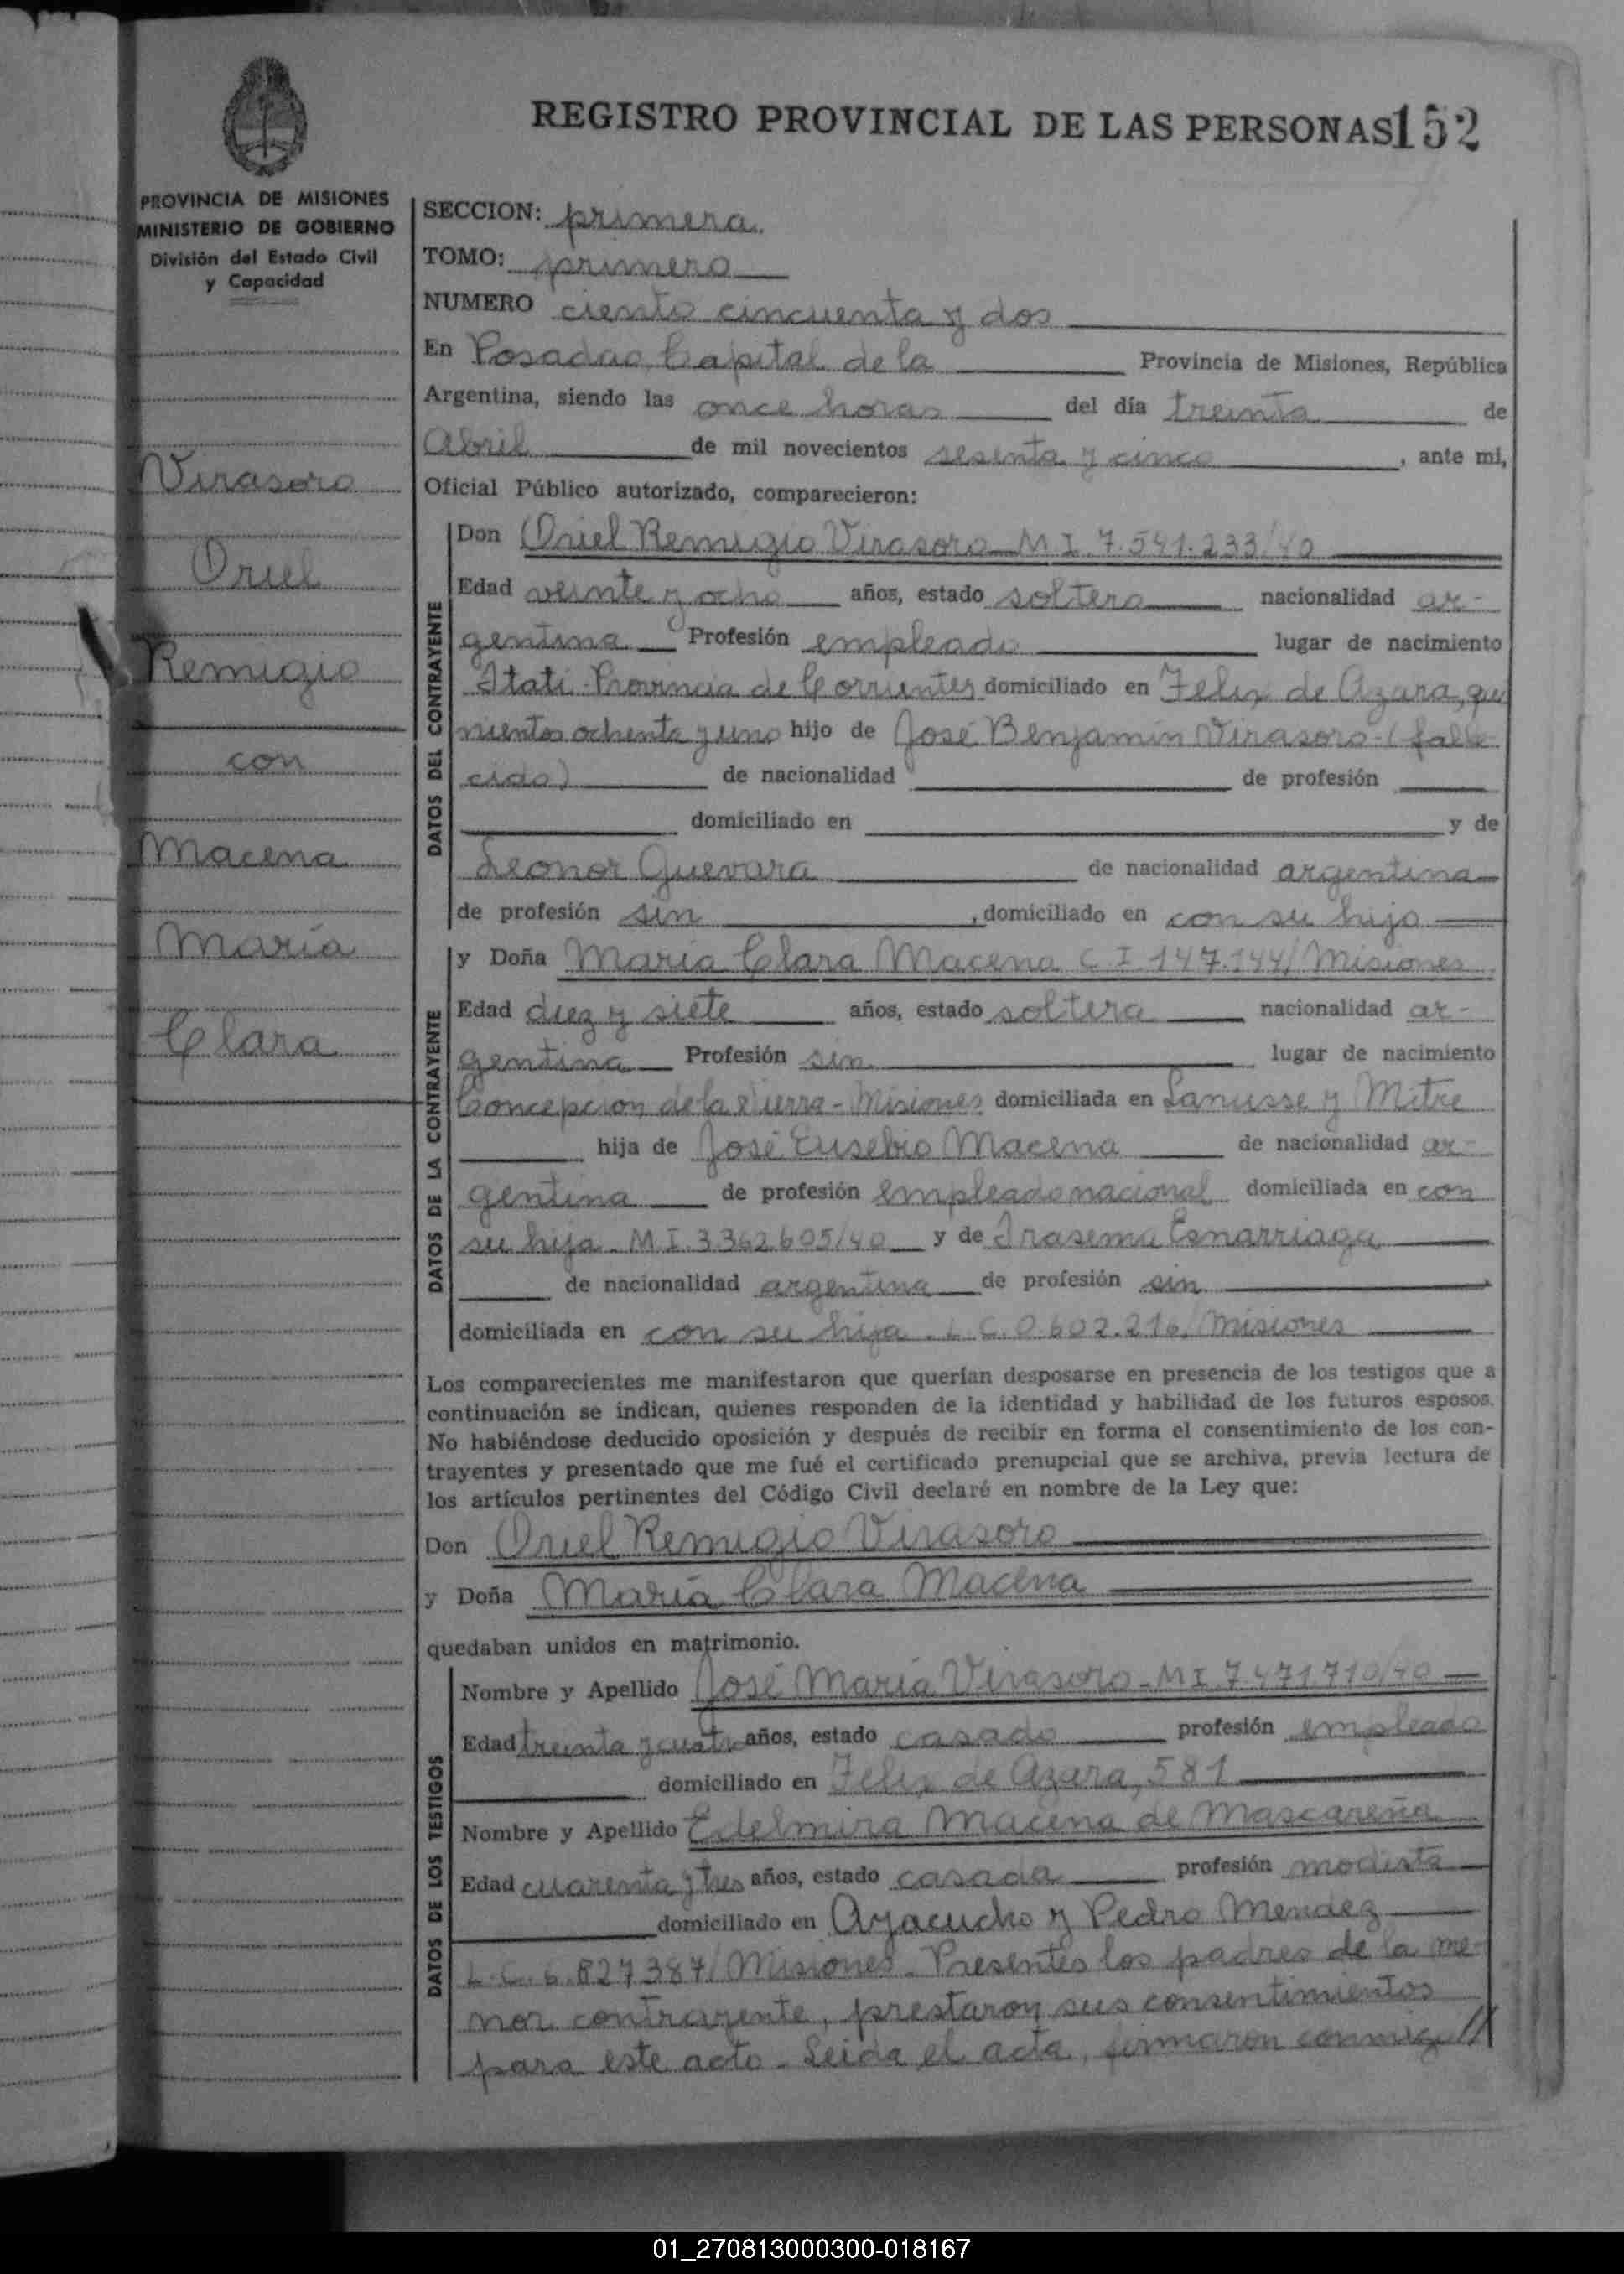 REGISTRO PROVINCIAL DE LAS PERSONAS 152
PROVINCIA DE MISIONES
MINISTERIO DE GOBIERNO
División del Estado Civil
y Capacidad
Virasoro
Oriel
Remigio
con
Macena
María
Clara
SECCION: primera
TOMO: primero
NUMERO ciento cincuenta y dos
En Posadas, Capital de la Provincia de Misiones, República
Argentina, siendo las once horas del día treinta de
Abril de mil novecientos sesenta y cinco, ante mi,
Oficial Público autorizado, comparecieron:
DATOS DEL CONTRAYENTE
Don Oriel Remigio Virasoro - M I. 7.541.233/40
Edad veinte y ocho años, estado soltero nacionalidad ar-
gentina Profesión empleado lugar de nacimiento
Itati - Provincia de Corrientes domiciliado en Felix de Azara, qui
nientos ochenta y uno hijo de José Benjamín Virasoro - (falle
cido) de nacionalidad de profesión
domiciliado en y de
Leonor Guevara de nacionalidad argentina
de profesión sin, domiciliado en con su hijo
DATOS DE LA CONTRAYENTE
y Doña María Clara Macena C I 147.144/ Misiones
Edad diez y siete años, estado soltera nacionalidad ar-
gentina Profesión sin lugar de nacimiento
Concepcion de la Sierra - Misiones domiciliada en Lanusse y Mitre
hija de José Eusebio Macena de nacionalidad ar-
gentina de profesión empleado nacional domiciliada en con
su hija - M I. 3.362.605/40 y de Irasema
de nacionalidad argentina de profesión sin
domiciliada en con su hija. L. C. 0.602.216/ Misiones
Los comparecientes me manifestaron que querían desposarse en presencia de los testigos que a
continuación se indican, quienes responden de la identidad y habilidad de los futuros esposos.
No habiéndose deducido oposición y después de recibir en forma el consentimiento de los con-
trayentes y presentado que me fué el certificado prenupcial que se archiva, previa lectura de
los artículos pertinentes del Código Civil declaré en nombre de la Ley que:
Don Oriel Remigio Virasoro
y Doña María Clara Macena
quedaban unidos en matrimonio.
DATOS DE LOS TESTIGOS
Nombre y Apellido José María Virasoro - M I. 7.471.710/40
Edad treinta y cuatro años, estado casado profesión empleado
domiciliado en Felix de Azara, 581
Nombre y Apellido Edelmira Macena de Mascareña
Edad cuarenta y tres años, estado casada profesión modista
domiciliado en Ayacucho y Pedro Mendez
L. C. 6.827387/ Misiones - Presentes los padres de la me-
nor contrayente, prestaron sus consentimientos
para este acto - Leida el acta, firmaron conmigo //
01_270813000300-018167